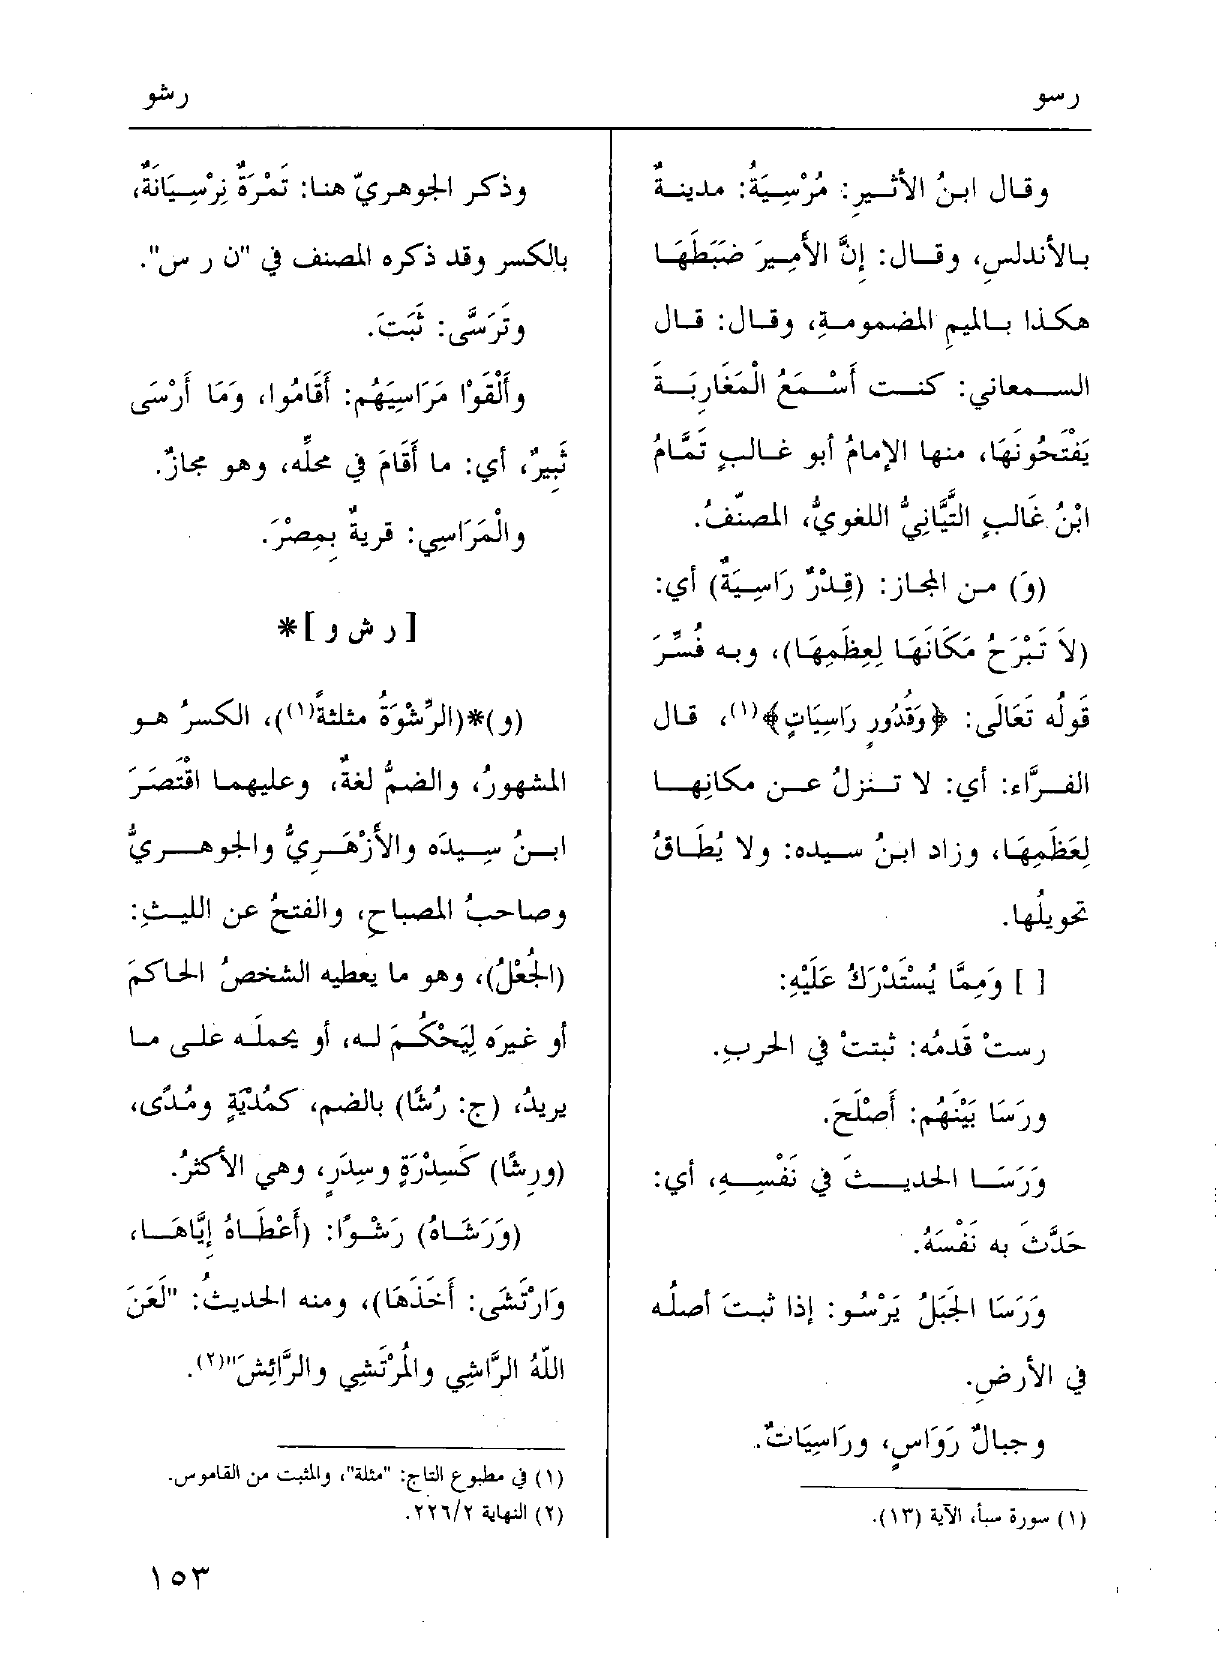 رسو
رشو
وقال ابنُ الأثيرِ: مُرْسِيَةُ: مدينةٌ
بالأندلسِ، وقال: إنَّ الأمِيرَ ضَبَطَهَا
هكذا بالميمِ المضمومةِ، وقال: قال
السمعاني: كنت أَسْمَعُ الْمَغَارِبَةَ
يَفْتَحُونَهَا، منها الإمامُ أبو غالبٍ تَمَّامُ
ابْنُ غَالبٍ التَّيَّانِيُّ اللغويُّ، المصنّفُ.
(وَ) من المجاز: (قِدْرٌ رَاسِيَةٌ) أي:
(لاَ تَبْرَحُ مَكَانَهَا لِعِظَمِهَا)، وبه فُسِّرَ
قَولُه تَعَالَى: ﴿وَقُدُورٍ رَاسِيَاتٍ﴾(١)، قال
الفرَّاء: أي: لا تنزلُ عن مكانِها
لِعَظَمِهَا، وزاد ابنُ سيده: ولا يُطَاقُ
تحويلُها.
[ ] وَمِمَّا يُسْتَدْرَكُ عَلَيْهِ:
رستْ قَدمُه: ثبتتْ في الحربِ.
ورَسَا بَيْنَهُم: أَصْلَحَ.
وَرَسَا الحديثَ في نَفْسِهِ، أي:
حَدَّثَ به نَفْسَهُ.
وَرَسَا الجَبَلُ يَرْسُو: إذا ثبتَ أصلُه
في الأرضِ.
وجبالٌ رَوَاسٍ، ورَاسِيَاتٌ.
(١) سورة سبأ، الآية (١٣).
وذكر الجوهريّ هنا: تَمْرَةٌ نِرْسِيَانَةٌ،
بالكسر وقد ذكره المصنف في "ن ر س".
وتَرَسَّى: ثَبَتَ.
وأَلْقَوْا مَرَاسِيَهُم: أَقَامُوا، وَمَا أَرْسَى
ثَبِيرٌ، أي: ما أَقَامَ في محلِّه، وهو مجازٌ.
والْمَرَاسِي: قريةٌ بمِصْرَ.
[ ر ش و ]*
(و)*(الرِّشْوَةُ مثلثةً(١))، الكسرُ هو
المشهورُ، والضمُّ لغةٌ، وعليهما اقْتَصَرَ
ابنُ سِيدَه والأَزْهَرِيُّ والجوهريُّ
وصاحبُ المصباحِ، والفتحُ عن الليثِ:
(الجُعْلُ)، وهو ما يعطيه الشخصُ الحاكمَ
أو غيرَه لِيَحْكُمَ له، أو يحملَه على ما
يريدُ، (ج: رُشًا) بالضم، كمُدْيَةٍ ومُدًى،
(ورِشًا) كَسِدْرَةٍ وسِدَرٍ، وهي الأكثرُ.
(وَرَشَاهُ) رَشْوًا: (أَعْطَاهُ إِيَّاهَا،
وَارْتَشَى: أَخَذَهَا)، ومنه الحديثُ: "لَعَنَ
اللهُ الرَّاشِي والْمُرْتَشِي والرَّائِشَ"(٢).
(١) في مطبوع التاج: "مثلة"، والمثبت من القاموس.
(٢) النهاية ٢/٢٢٦.
١٥٣